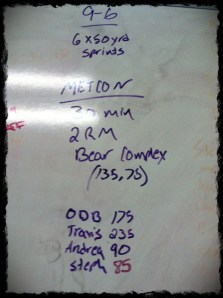 9-6
6x50yrd
sprints
METCON
30 min
2RM
Bear Complex
(135,75)
ODB 175
Travis 235
Andrea 90
Steph 85